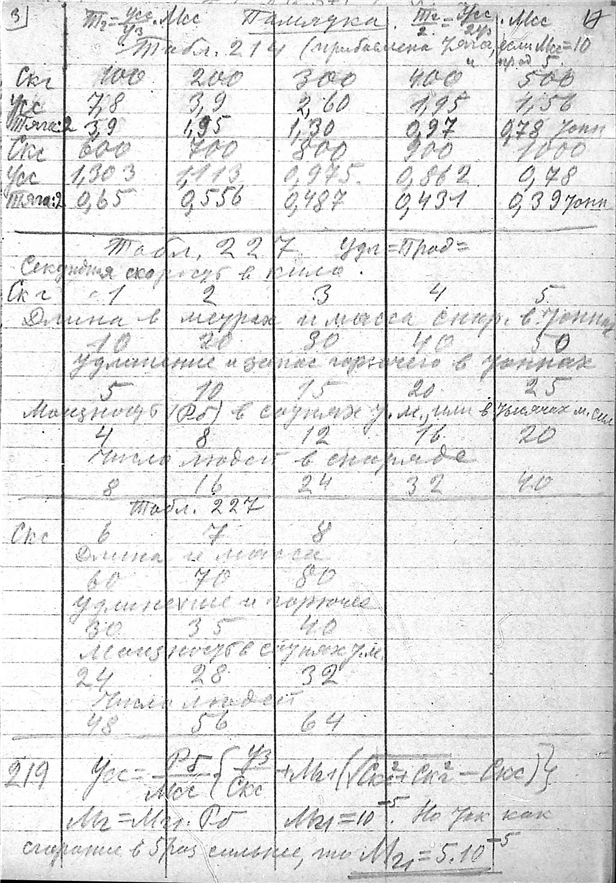 3] Тг = Усс/Уз · Мсс Памятка. Тг/2 = Усс/2Уз · Мсс 17
Табл. 214 (прибавлена тяга, если Мсс = 10 и прод 5.
Скг 100 200 300 400 500
Усс 7,8 3,9 2,60 1,95 1,56
Тяга:2 3,9 1,95 1,30 0,97 0,78 тонн
Скс 600 700 800 900 1000
Усс 1,303 1,113 0,975 0,862 0,78
Тяга:2 0,65 0,556 0,487 0,431 0,39 тонн
Табл. 227 Удл = Прод =
Секундная скорость в кило.
Скг 1 2 3 4 5
Длина в метрах и масса снар. в тоннах
10 20 30 40 50
Удлинение и запас горючего в тоннах
5 10 15 20 25
Мощность (Рб) в сотнях т.м., или в тысячах м. сил
4 8 12 16 20
Число людей в снаряде
8 16 24 32 40
Табл. 227
Скс 6 7 8
Длина и масса
60 70 80
Удлинение и горючее
30 35 40
Мощность в сотнях т.м.
24 28 32
Число людей
48 56 64
219 Усс = Рб/Мсс { Уз/Скс + Мг1 (√(Скс² + Скг²) − Скс) }
Мг = Мг1. Рб Мг1 = 10⁻⁵. Но так как
сгорание в 5 раз сильнее, то Мг1 = 5.10⁻⁵